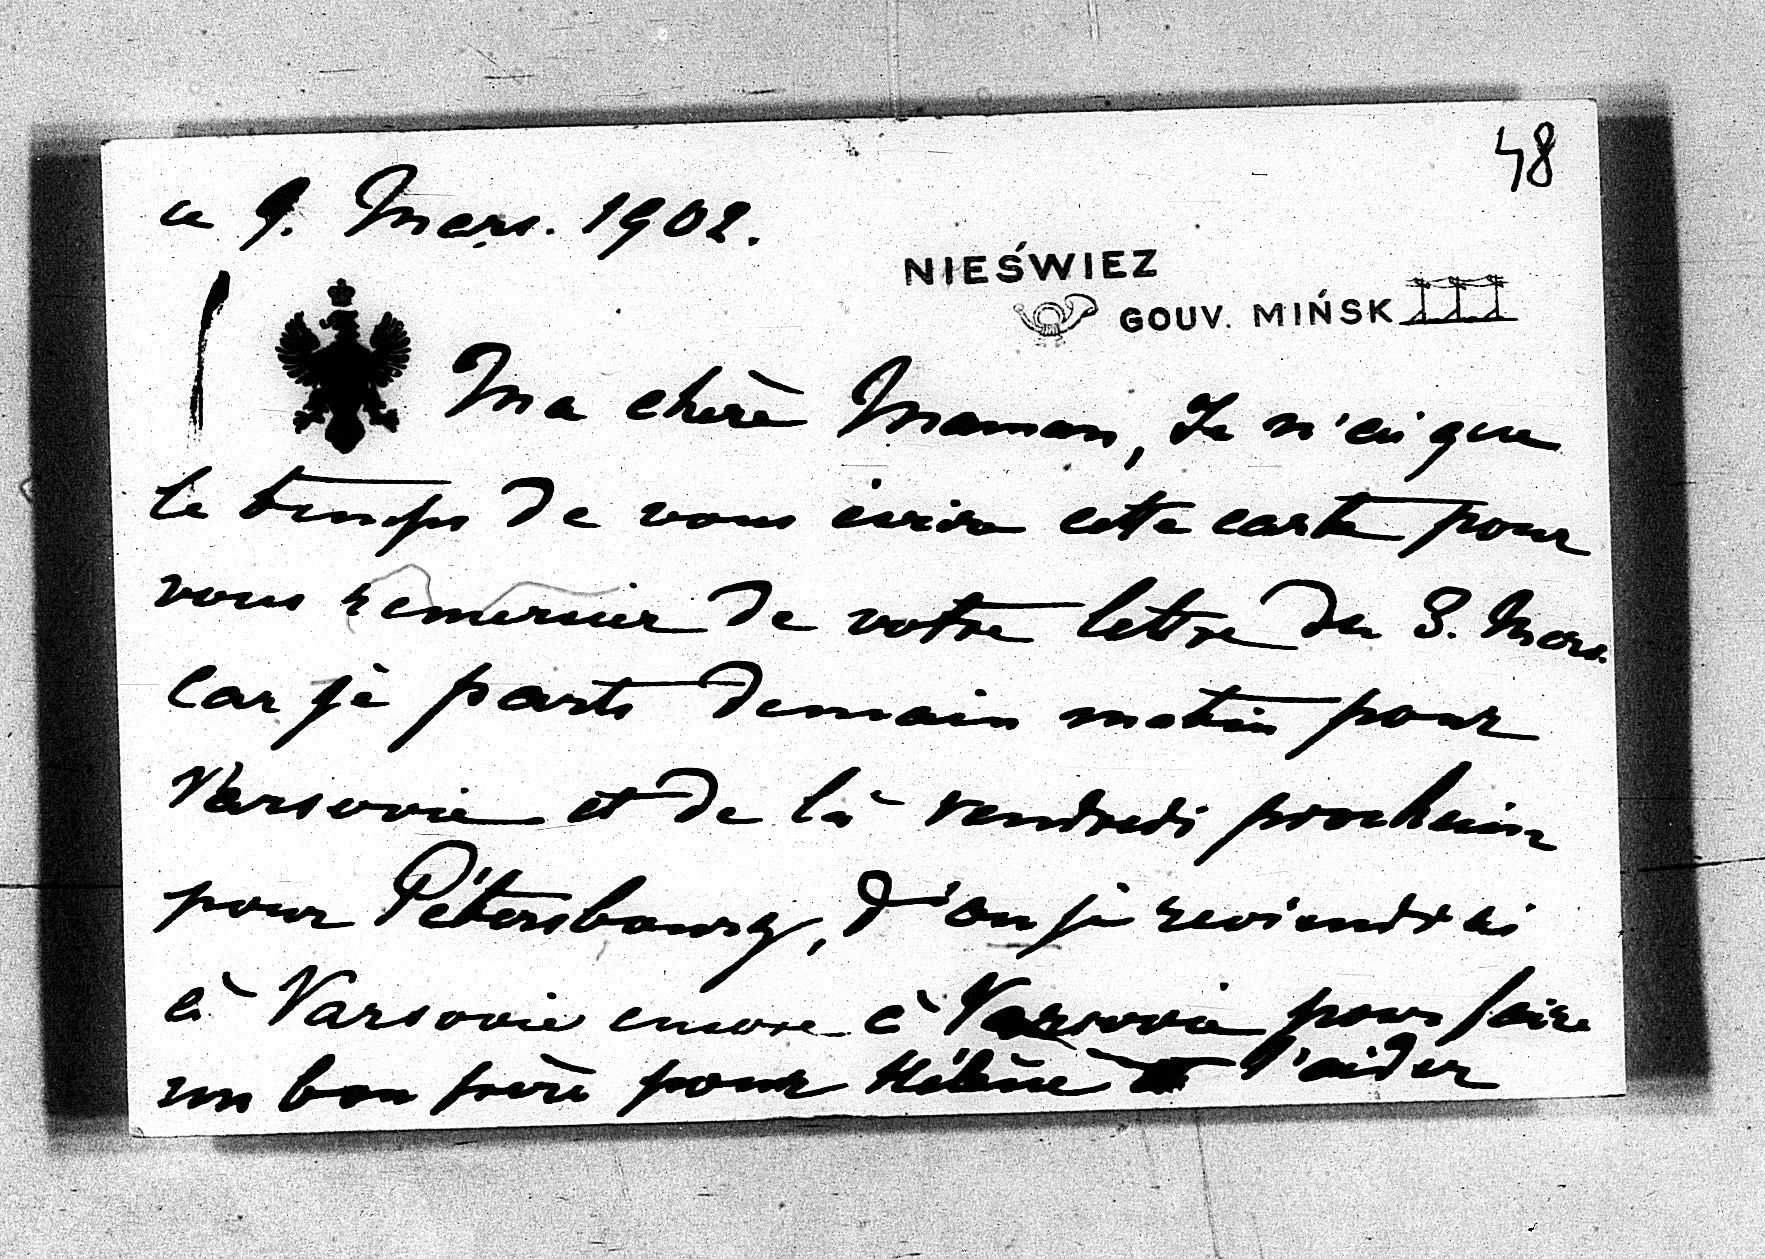 48
ce 9. Mars. 1902.
NIEŚWIEZ
GOUV. MIŃSK
Ma chère Maman, Je n'ai que
le temps de vous écrire cette carte pour
vous remercier de votre lettre du 3. Mars.
car je parts demain matin pour
Varsovie et de là vendredi prochain
pour Pétersbourg, d'ou je reviendrai
à Varsovie encore à Varsovie pour faire
un bon frère pour Hélène l'aider